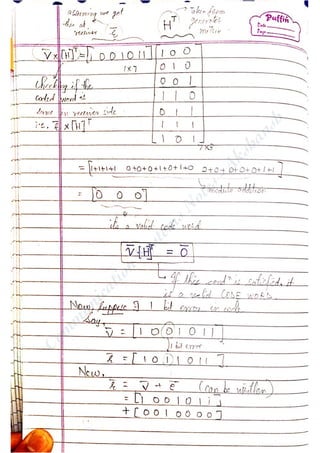 assuming we get
this at
receiver
r̄
Hᵀ
Taken from
generator
matrix
Puffin
Date
Page
v̄ x [H]ᵀ = [1 0 0 1 0 1 1] [1 0 0
1x7
0 1 0
checking if the
0 0 1
coded word is
1 1 0
same in receiver side
0 1 1
i.e. r̄ x [H]ᵀ
1 1 1
1 0 1] 7x3
= [1+1+1+1 0+0+0+1+0+1+0 0+0+0+0+0+1+1]
= [0 0 0]
modulo addition
it's a valid code word
v̄[H]ᵀ = 0̄
If this condⁿ is satisfied, it
is a valid CODE WORD.
Now, suppose ∃ 1 bit error in code
Say,
v̄ = [1 0 0 1 0 1 1]
1 bit error
r̄ = [1 0 1 1 0 1 1]
Now,
r̄ = v̄ + ē (can be written)
= [1 0 0 1 0 1 1]
+ [0 0 1 0 0 0 0]